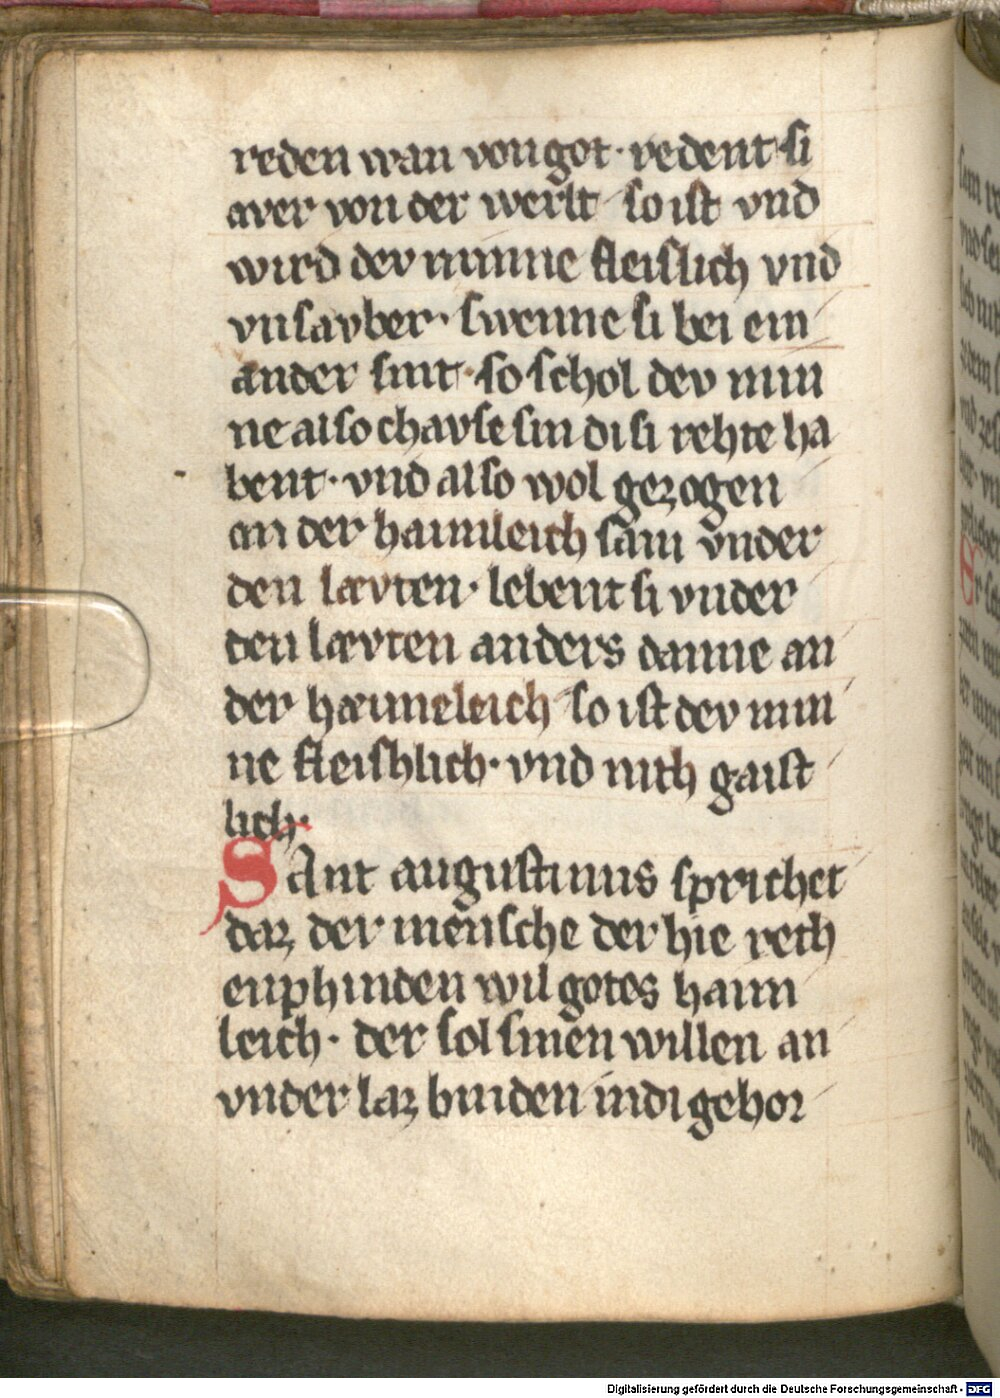 reden wan von got · redent si
aver von der werlt so ist vnd
wird dev minne fleislich vnd
vnsavber · swenne si bei ein
ander sint · so schol dev min
ne also chavse sin di si rehte ha
bent · vnd also wol gezogen
an der haimleich sam vnder
den lævten · lebent si vnder
den lævten anders danne an
der hæimeleich so ist dev min
ne fleishlich · vnd nith gaist
lich ·
Sant augustinus sprichet
daz der mensche der hie reth
enphinden wil gotes haim
leich · der sol sinen willen an
vnder laz binden in di gehor
Digitalisierung gefördert durch die Deutsche Forschungsgemeinschaft - DFG